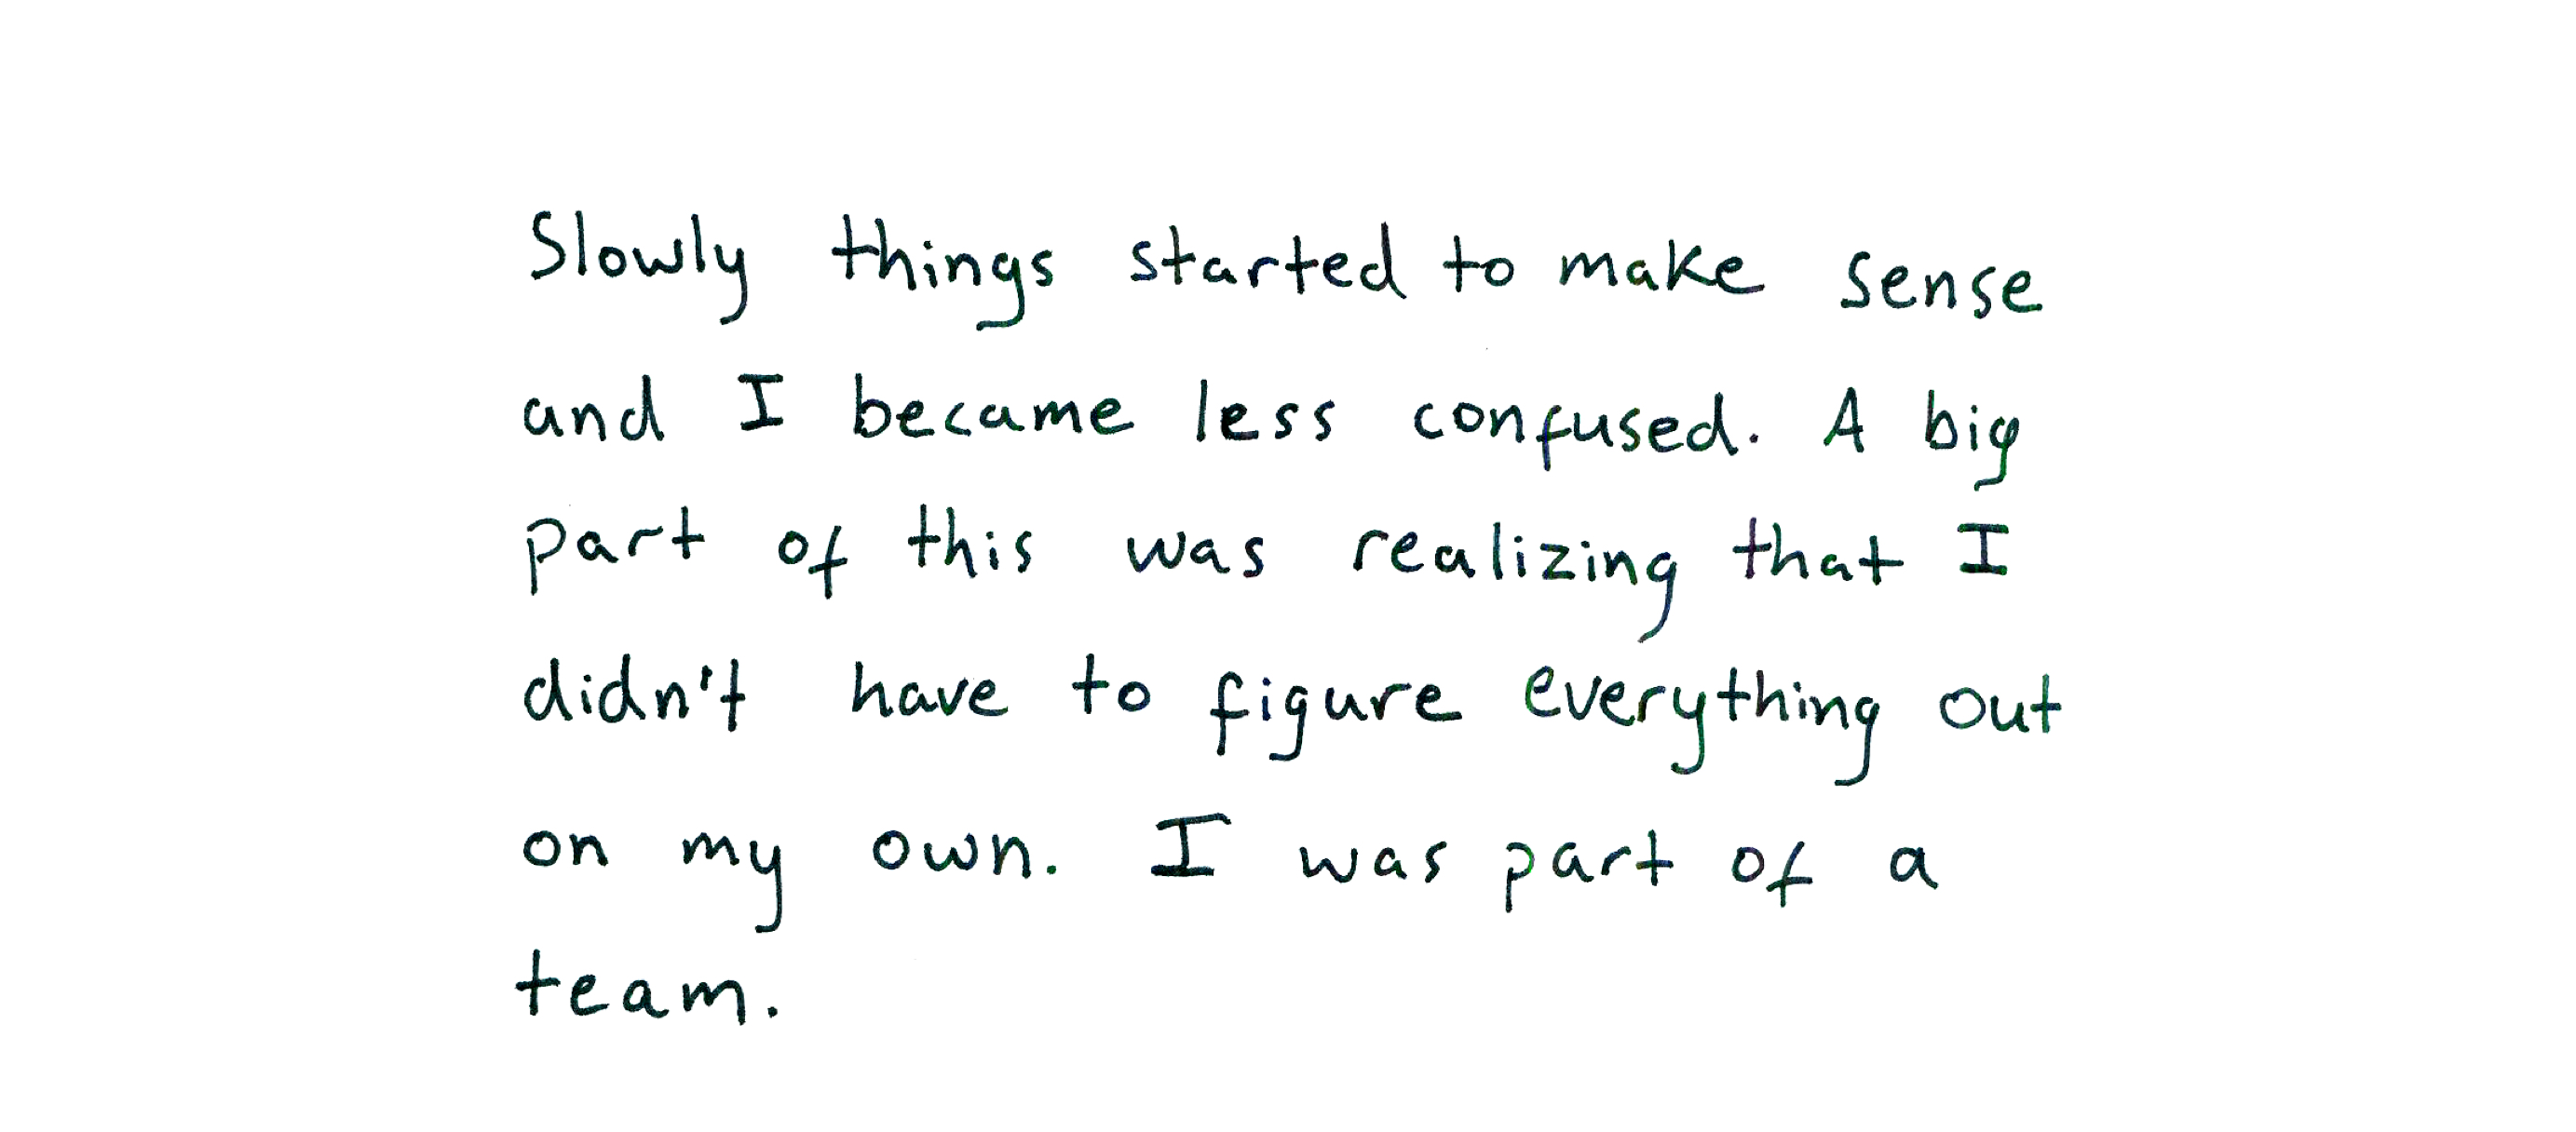 Slowly things started to make sense
and I became less confused. A big
part of this was realizing that I
didn't have to figure everything out
on my own. I was part of a
team.